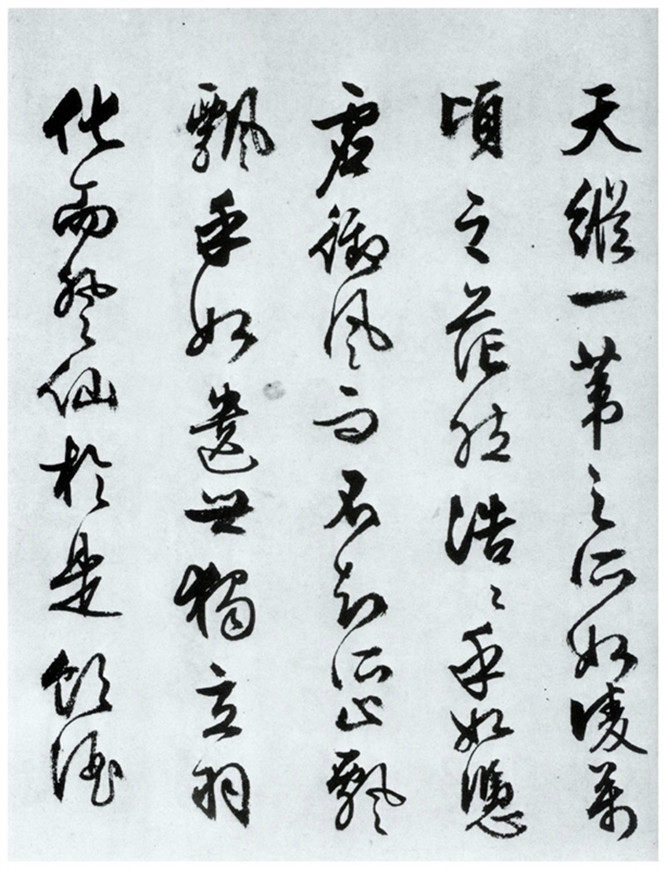 天縱一葦之所如凌萬
頃之茫然浩〻乎如憑
虛御風而不知所止飄
飄乎如遺世獨立羽
化而登仙於是飲酒